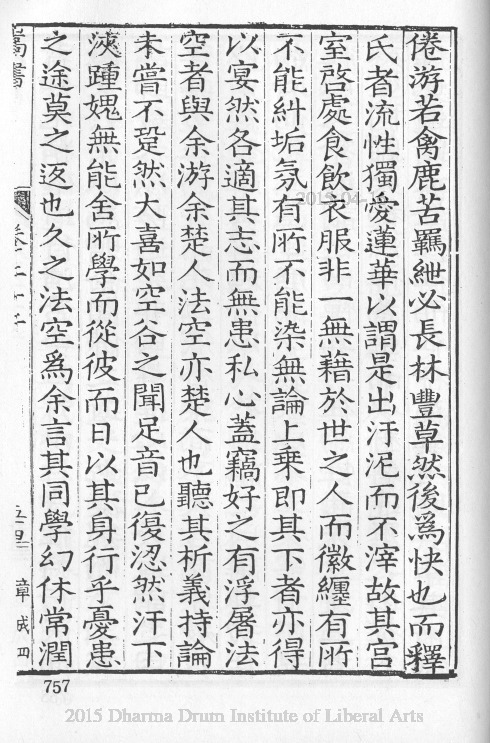 倦游若禽鹿苦羈紲必長林豐草然後爲快也而釋
氏者流性獨愛蓮華以謂是出汙泥而不滓故其宮
室啓處食飲衣服非一無藉於世之人而徽纆有所
不能糾垢氛有所不能染無論上乘卽其下者亦得
以宴然各適其志而無患私心蓋竊好之有浮屠法
空者與余游余楚人法空亦楚人也聽其析義持論
未嘗不跫然大喜如空谷之聞足音已復涊然汗下
淡踵媿無能舍所學而從彼而日以其身行乎憂患
之途莫之返也久之法空爲余言其同學幻休常潤
嵩書
章成四
757
2015 Dharma Drum Institute of Liberal Arts